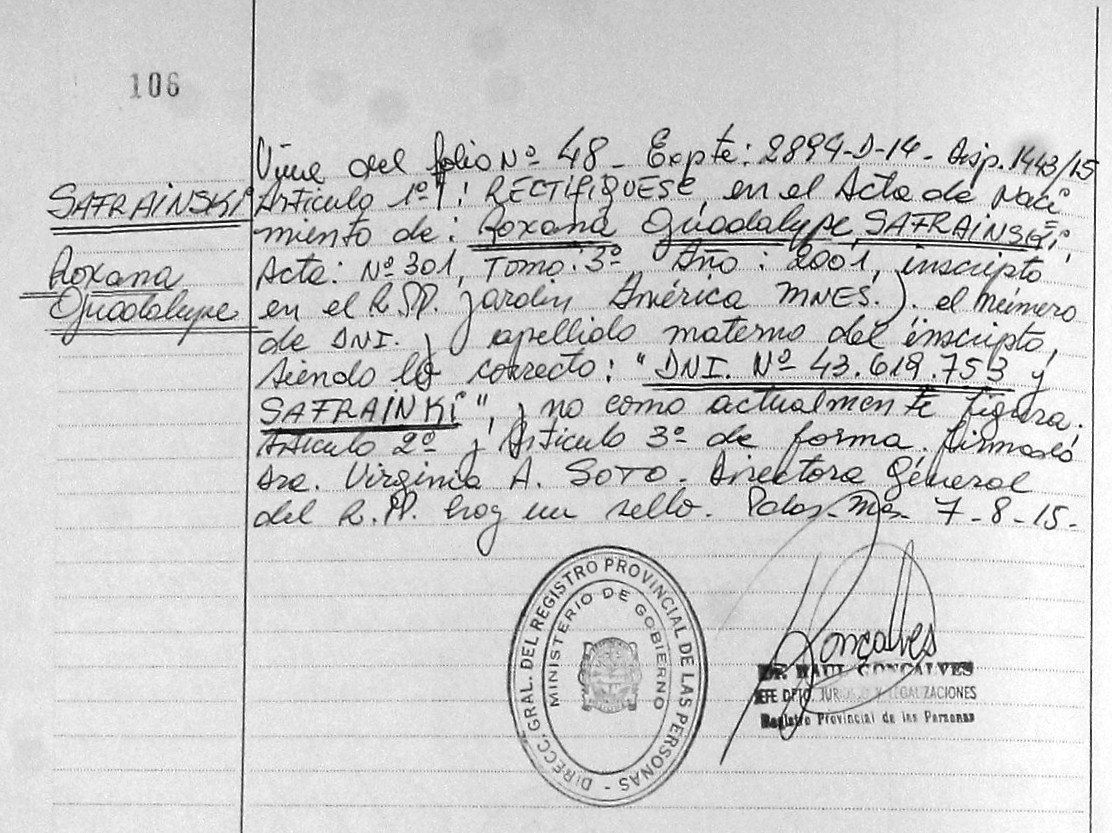 106
SAFRAINSKI
Roxana
Guadalupe
Viene del folio Nº 48 - Expte: 2894-D-14 - Disp. 1443/15
Artículo 1º: RECTIFIQUESE, en el Acta de Naci
miento de: Roxana Guadalupe SAFRAINSKI,
Acta: Nº 301, Tomo: 3º Año: 2001, inscripto
en el R.PP. Jardin América MNES.). el número
de DNI. y apellido materno del inscripto,
siendo lo correcto: "DNI. Nº 43.619.753 y
SAFRAINKI", y no como actualmente figura.
Artículo 2º y Artículo 3º de forma. Firmado
Dra. Virginia A. SOTO. Directora General
del R.PP. hay un sello. Pdas-Mes- 7-8-15-
DIRECC. GRAL. DEL REGISTRO PROVINCIAL DE LAS PERSONAS -
MINISTERIO DE GOBIERNO
Gonçalves
DR. RAUL GONÇALVES
JEFE DPTO JURIDICO Y LEGALIZACIONES
Registro Provincial de las Personas